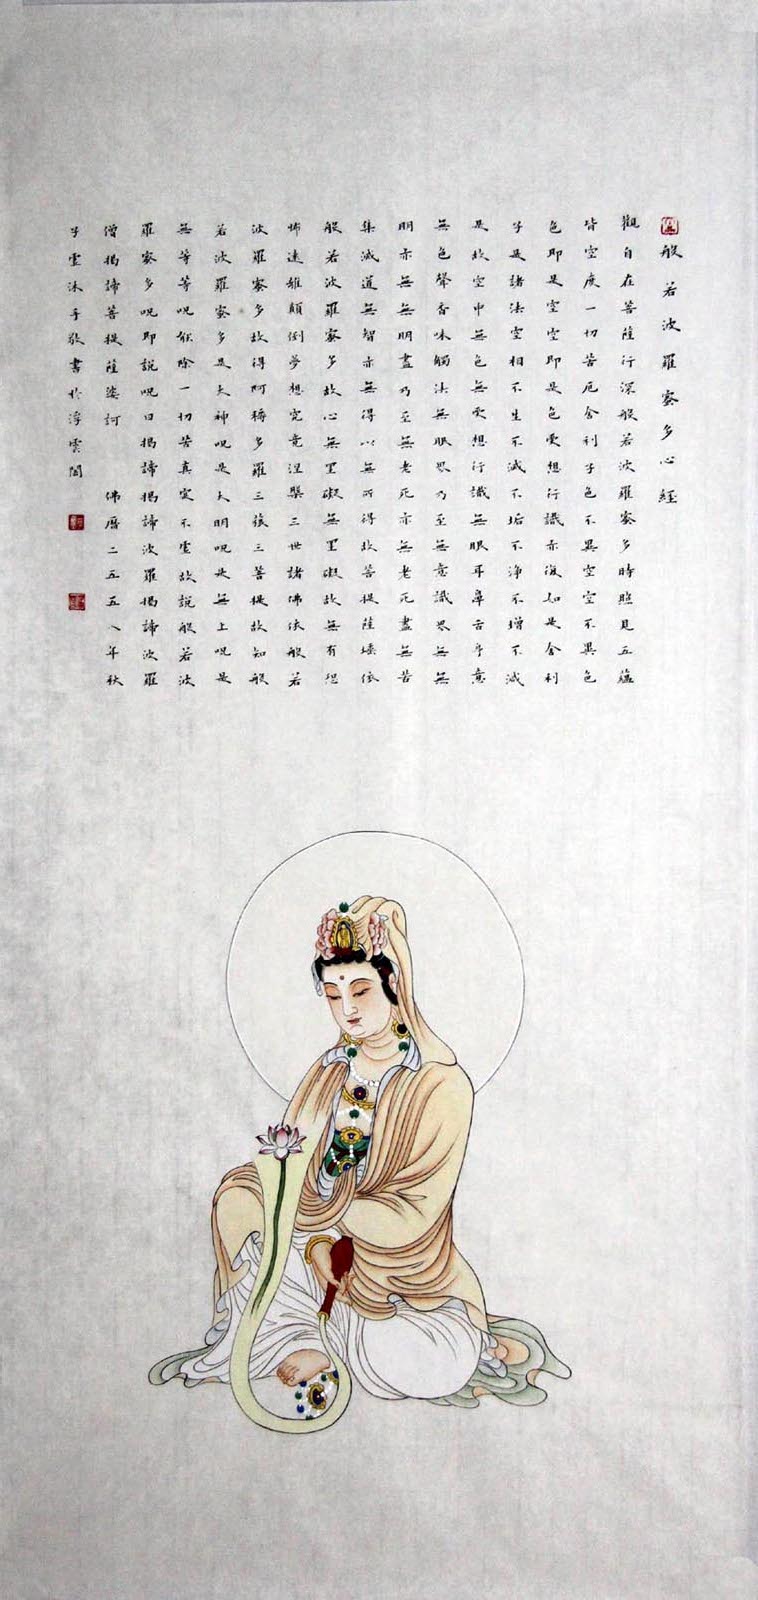 般若波羅蜜多心經
觀自在菩薩行深般若波羅蜜多時照見五蘊
皆空度一切苦厄舍利子色不異空空不異色
色即是空空即是色受想行識亦復如是舍利
子是諸法空相不生不滅不垢不淨不增不減
是故空中無色無受想行識無眼耳鼻舌身意
無色聲香味觸法無眼界乃至無意識界無無
明亦無無明盡乃至無老死亦無老死盡無苦
集滅道無智亦無得以無所得故菩提薩埵依
般若波羅蜜多故心無罣礙無罣礙故無有恐
怖遠離顛倒夢想究竟涅槃三世諸佛依般若
波羅蜜多故得阿耨多羅三藐三菩提故知般
若波羅蜜多是大神呪是大明呪是無上呪是
無等等呪能除一切苦真實不虛故說般若波
羅蜜多呪即說呪曰揭諦揭諦波羅揭諦波羅
僧揭諦菩提薩婆訶 佛曆二五五八年秋
子雲沐手敬書於浮雲閣